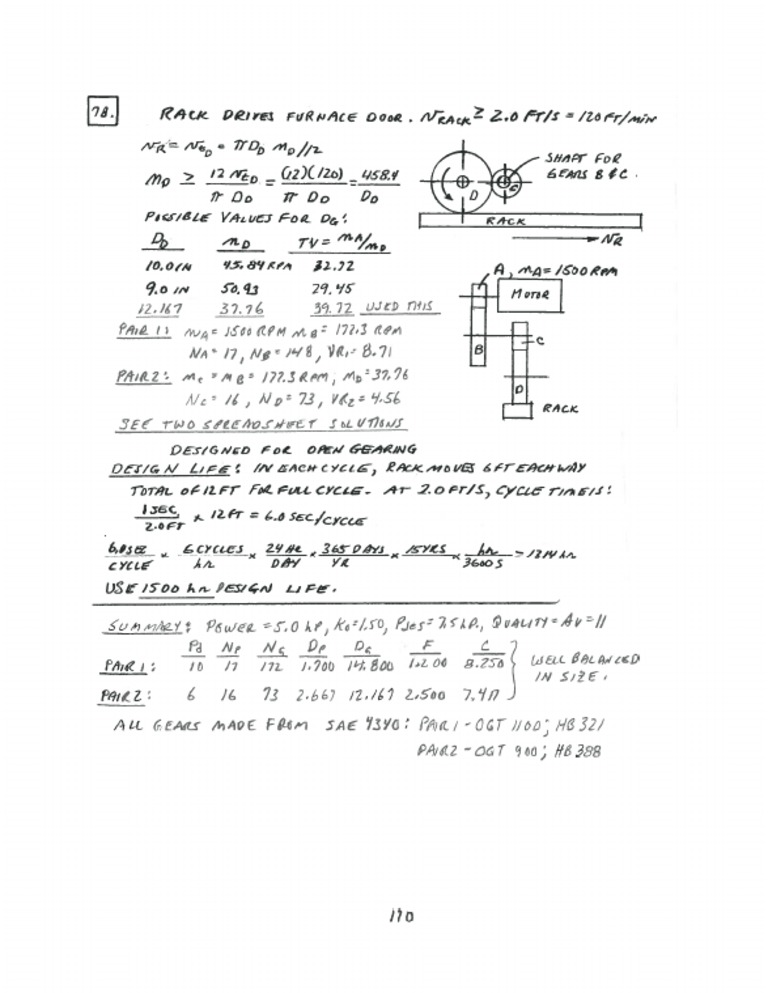 78.
RACK DRIVES FURNACE DOOR. NRACK ≥ 2.0 FT/S = 120 FT/MIN
NR = NGD = πDD MD/12
MD ≥ 12 NGD / π DD = (12)(120) / π DD = 458.4 / DD
POSSIBLE VALUES FOR DG:
DD MD TV = MA/MD
10.0 IN 45.84 RPM 32.72
9.0 IN 50.93 29.45
12.167 37.76 39.72 USED THIS
PAIR 1: MA = 1500 RPM MB = 172.3 RPM
NA = 17, NB = 148, VR1 = 8.71
PAIR 2: MC = MB = 172.3 RPM, MD = 37.76
NC = 16, ND = 73, VR2 = 4.56
SEE TWO SPREADSHEET SOLUTIONS
SHAFT FOR
GEARS B & C.
D
C
RACK
NR
A, MA = 1500 RPM
MOTOR
B
C
D
RACK
DESIGNED FOR OPEN GEARING
DESIGN LIFE: IN EACH CYCLE, RACK MOVES 6 FT EACH WAY
TOTAL OF 12 FT FOR FULL CYCLE. AT 2.0 FT/S, CYCLE TIME IS:
1 SEC / 2.0 FT × 12 FT = 6.0 SEC/CYCLE
6.0 SEC / CYCLE × 6 CYCLES / hr × 24 HR / DAY × 365 DAYS / YR × 15 YRS × hr / 3600 S = 1314 hr
USE 1500 hr DESIGN LIFE.
SUMMARY: POWER = 5.0 hP, K0 = 1.50, PDES = 7.5 hP., QUALITY = AV = 11
Pd NP NG DP DG F C
PAIR 1: 10 17 172 1.700 14.800 1.200 8.250
PAIR 2: 6 16 73 2.667 12.167 2.500 7.417
WELL BALANCED
IN SIZE.
ALL GEARS MADE FROM SAE 4340: PAIR 1 - OQT 1100; HB 321
PAIR 2 - OQT 900; HB 388
170